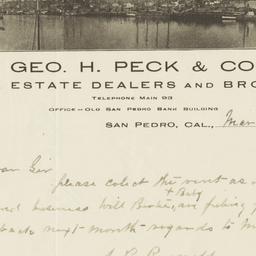 GEO. H. PECK & CO
ESTATE DEALERS AND BRO
TELEPHONE MAIN 93
OFFICE - OLD SAN PEDRO BANK BUILDING
SAN PEDRO, CAL., Mar
ear Sir
please colect the rent as
+ Baby
business Will Broke, are
back next month - regards to M